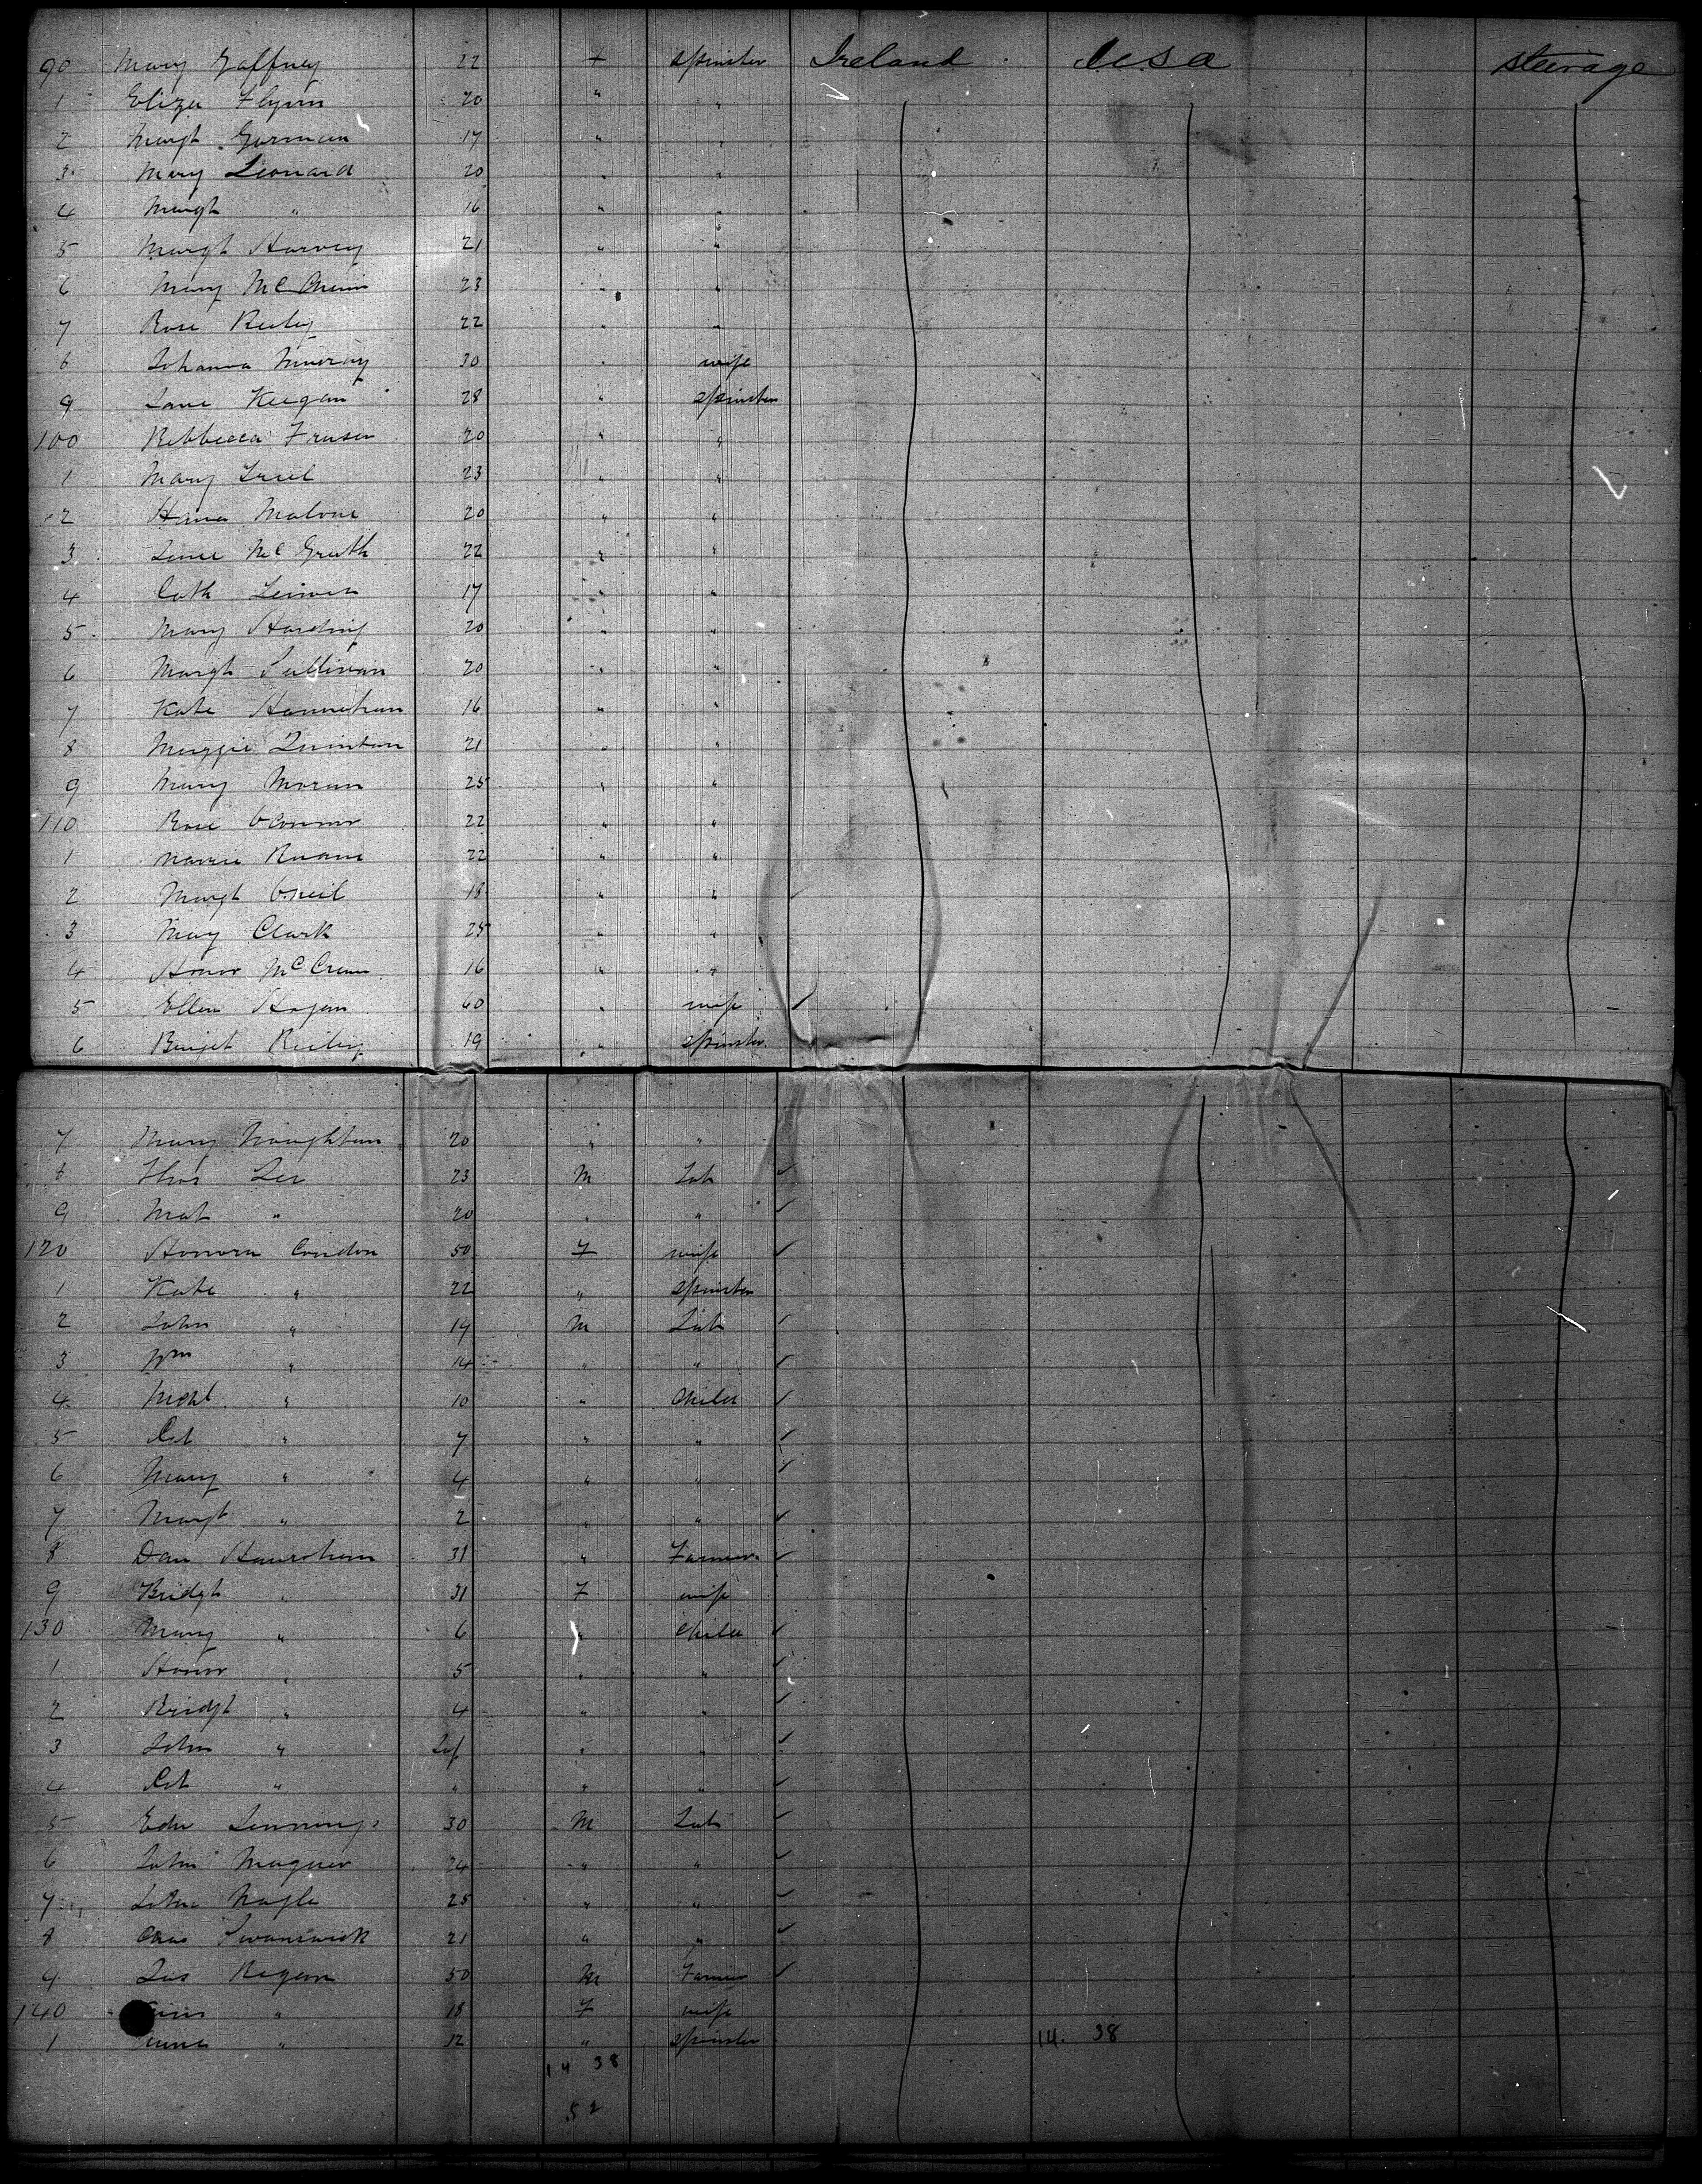 90 Mary Gaffney 22 f spinster Ireland usa steerage
1 Eliza Flynn 20 " "
2 Margt Gorman 17 " "
3 Mary Leonard 20 " "
4 Margt " 16 " "
5 Margt Harvey 21 " "
6 Mary 23 " "
7 Rose Reiley 22 " "
8 Johanna Murray 30 " wife
9 Jane Keegan 28 " spinster
100 Rebbecca Fraser 20 " "
1 Mary 23 " "
2 Malone 20 " "
3 Jane McGrath 22 " "
4 Cath 17 " "
5 Mary Harding 20 " "
6 Margt Sullivan 20 " "
7 Kate Hanrahan 16 " "
8 Maggie Quinlan 21 " "
9 Mary Moran 25 " "
110 Rose OConnor 22 " "
1 Ruane 22 " "
2 Margt Oneil 18 " "
3 May Clark 25 " "
4 Honor 16 " "
5 Ellen Hogan 40 " wife
6 Reiley 19 " spinster
7 Mary Naughton 20 " "
8 Thos Lee 23 M Lab
9 Mat " 20 " "
120 Honora Condon 50 F wife
1 Kate " 22 " spinster
2 John " 19 M Lab
3 Wm " 14 " "
4 Michl " 10 " Child
5 Pat " 7 " "
6 Mary " 4 " "
7 Margt " 2 " "
8 Dan Hanrahan 31 " Farmer
9 Bridgt " 31 F wife
130 Mary " 6 " Child
1 Honor " 5 " "
2 Bridgt " 4 " "
3 John " Inf " "
4 Pat " " " "
5 Edw Jennings 30 M Lab
6 John Magner 24 " "
7 John Nagle 25 " "
8 Chas Swanwick 21 " "
9 Jas Regan 50 M Farmer
140 " 18 F wife
1 " 12 " spinster 14. 38
14 38
52